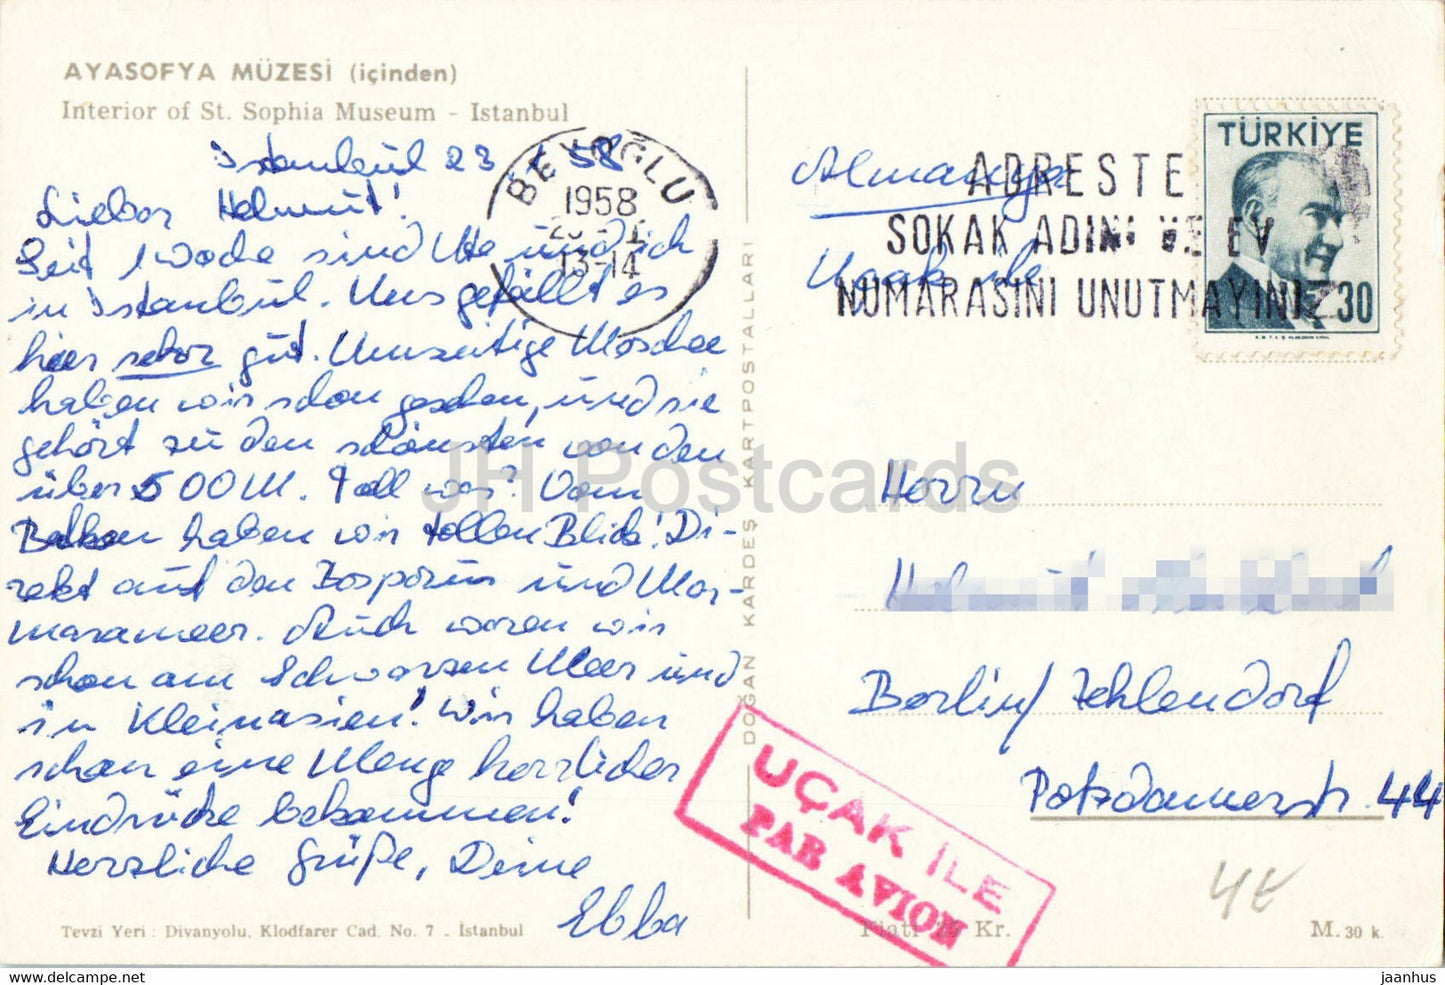 AYASOFYA MÜZESİ (içinden)
Interior of St. Sophia Museum - Istanbul
Istanbul 23 58
Lieber Helmut!
Seit 1 Woche sind Ute und ich
in Istanbul. Uns gefällt es
hier sehr gut. Unzeitige Moscheen
haben wir schon gesehen, und sie
gehört zu den schönsten von den
über 500 M. Toll was? Vom
Balkon haben wir tollen Blick! Di-
rekt auf den Bosporus und Mar-
marameer. Auch waren wir
schon am Schwarzen Meer und
in Kleinasien! Wir haben
schon eine Menge herrlicher
Eindrücke bekommen!
Herzliche Grüße, Deine
Ebba
Tevzi Yeri : Divanyolu, Klodfarer Cad. No. 7 - İstanbul
DOĞAN KARDEŞ KARTPOSTALLARI
BEYOĞLU
1958
13-14
ADRESTE
SOKAK ADINI VE EV
NUMARASINI UNUTMAYINIZ
TÜRKİYE
30
Almanya
Uçak ile
Herrn
Helmut
Berlin/Zehlendorf
Potsdamerstr. 44
UÇAK İLE
PAR AVION
Fiatı Kr.
M. 30 k.
JH Postcards
hippostcard.com/store/jaanhus
jaanhus